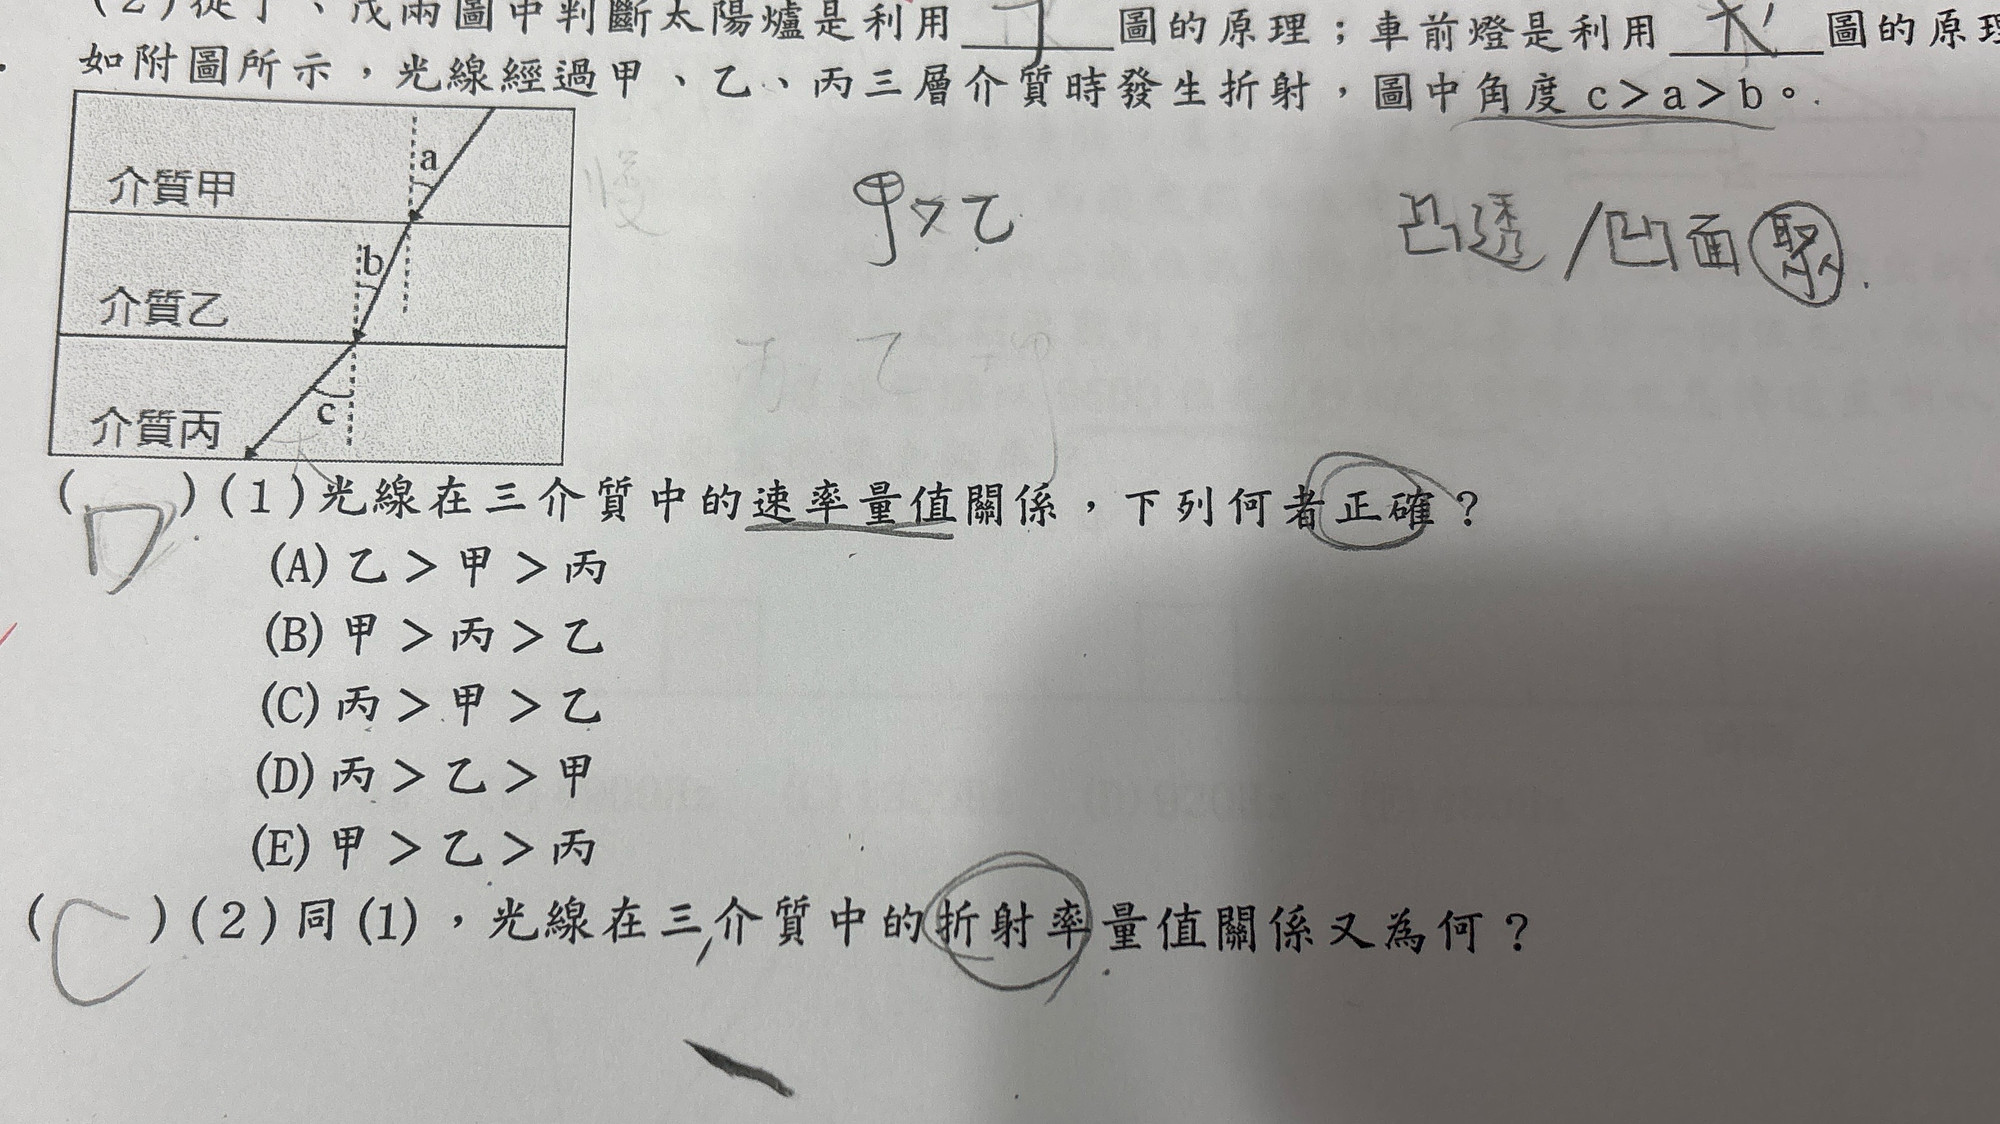 (2)從丁、戊兩圖中判斷太陽爐是利用 丁 圖的原理；車前燈是利用 戊 圖的原理
如附圖所示，光線經過甲、乙、丙三層介質時發生折射，圖中角度 c>a>b。
介質甲
a
介質乙
b
介質丙
c
慢
甲>乙
凸透/凹面聚
丙 乙 甲
( D )(1)光線在三介質中的速率量值關係，下列何者正確？
(A)乙>甲>丙
(B)甲>丙>乙
(C)丙>甲>乙
(D)丙>乙>甲
(E)甲>乙>丙
( C )(2)同(1)，光線在三介質中的折射率量值關係又為何？